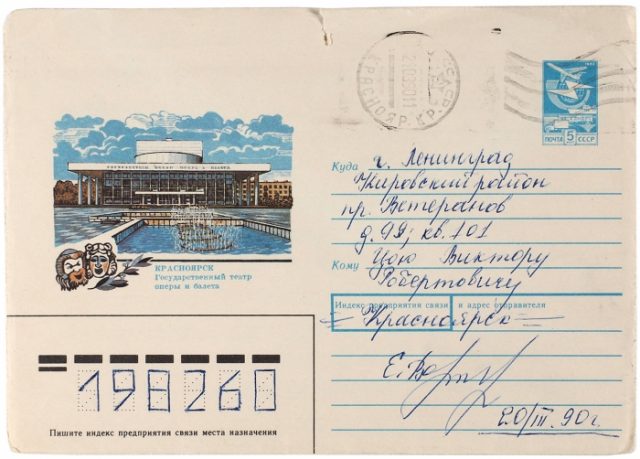 ГОСУДАРСТВЕННЫЙ ТЕАТР ОПЕРЫ И БАЛЕТА
КРАСНОЯРСК
Государственный театр
оперы и балета
КРАСНОЯР. КР.
ПОЧТА 5 СССР
Куда г. Ленинград
Кировский район
пр. Ветеранов
д. 99; кв. 101
Кому Цою Виктору
Робертовичу
Индекс предприятия связи и адрес отправителя
Красноярск
20/III. 90г.
198260
Пишите индекс предприятия связи места назначения